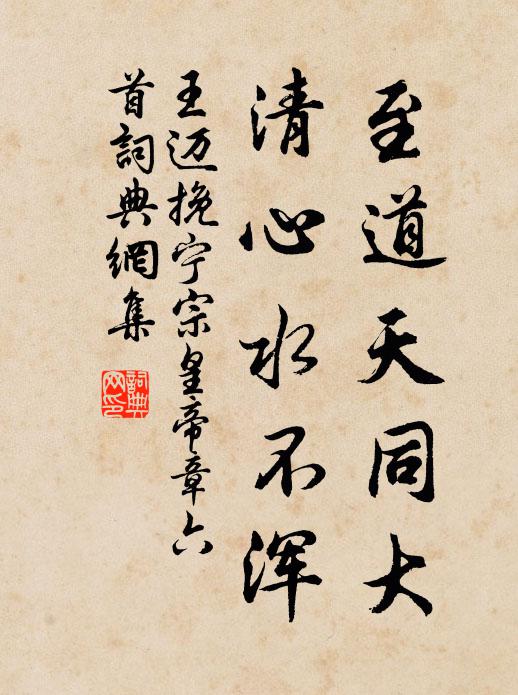 至道天同大
清心水不浑
王迈挽宁宗皇帝章六
首詞典網集
詞典
网印